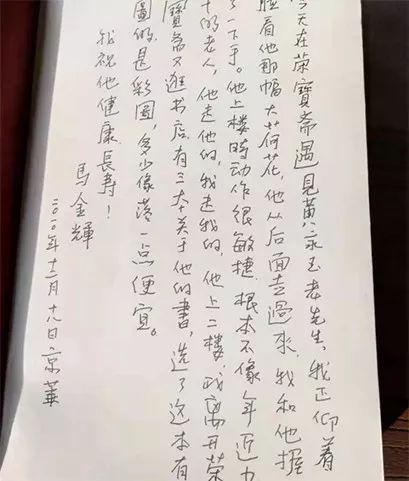 今天在荣寶斋遇見黄永玉老先生，我正仰着
脸看他那幅大荷花，他从后面走過來，我和他握
了一下手。他上楼時动作很敏捷，根本不像年近
十的老人，他走他的，我走我的，他上二楼，我离开荣
寶斋又逛书店，有三大本关于他的書，选了这本有
圖的，是彩圖，多少像落一点便宜。
我祝他健康長寿！
馬金輝
二〇〇年十二月十八日京華